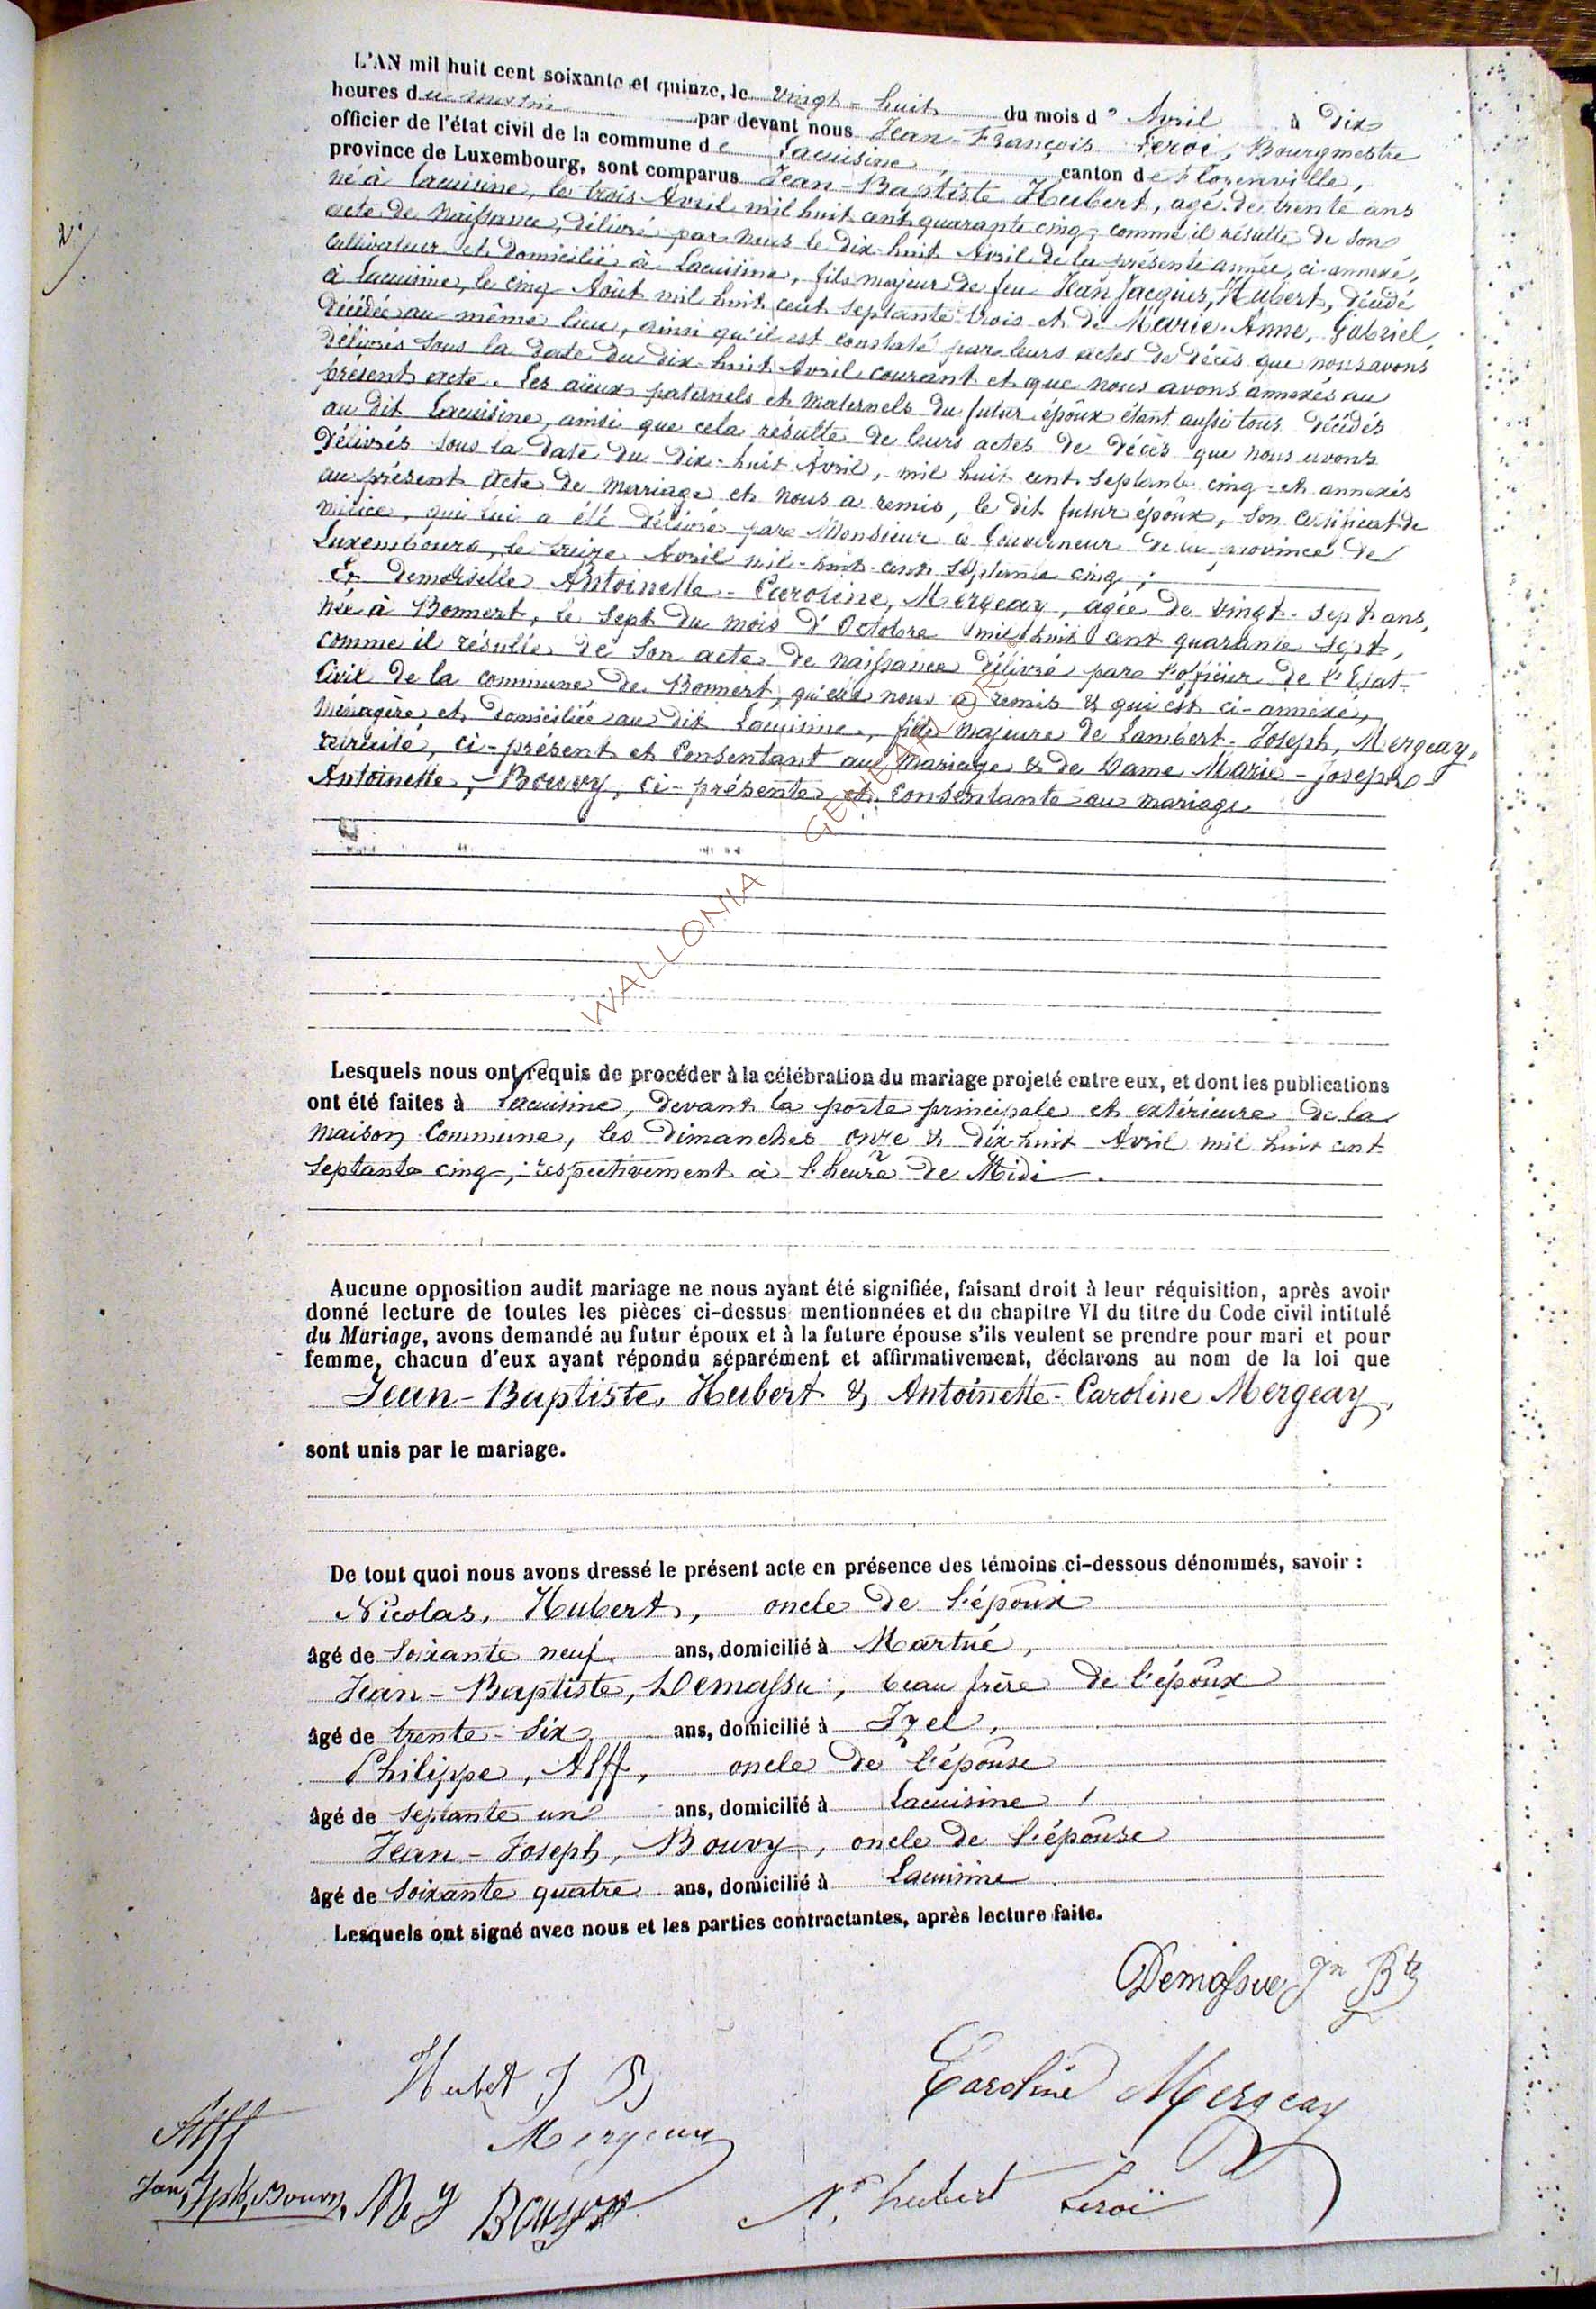 2.
L'AN mil huit cent soixante et quinze, le vingt-huit du mois d' Avril à dix
heures du matin par devant nous Jean-François Leroi, Bourgmestre
officier de l'état civil de la commune de Lacuisine canton de Florenville,
province de Luxembourg, sont comparus Jean-Baptiste Hubert, agé de trente ans
né à Lacuisine, le trois Avril mil huit cent quarante cinq, comme il résulte de son
acte de naissance, délivré par nous le dix-huit Avril de la présente année, ci-annexé,
cultivateur et domicilié à Lacuisine, fils majeur de feu Jean Jacques, Hubert, décédé
à Lacuisine, le cinq Août mil huit cent septante trois et de Marie-Anne, Gabriel,
décédée au même lieu, ainsi qu'il est constaté par leurs actes de décès que nous avons
délivrés sous la date du dix-huit Avril courant et que nous avons annexés au
présent acte. Les aïeux paternels et maternels du futur époux étant aussi tous décédés
au dit Lacuisine, ainsi que cela résulte de leurs actes de décès que nous avons
délivrés sous la date du dix-huit Avril, mil huit cent septante cinq et annexés
au présent acte de mariage et nous a remis, le dit futur époux, son certificat de
milice, qui lui a été délivré par Monsieur le Gouverneur de la province de
Luxembourg, le treize Avril mil-huit-cent septante cinq ;
Et demoiselle Antoinette-Caroline, Mergeay, agée de vingt-sept ans,
née à Bonnert, le sept du mois d'Octobre mil huit cent quarante sept,
comme il résulte de son acte de naissance délivré par l'officier de l'Etat-
Civil de la commune de Bonnert, qu'elle nous a remis & qui est ci-annexé,
Ménagère et domiciliée au dit Lacuisine, fille majeure de Lambert-Joseph, Mergeay,
retraité, ci-présent et consentant au mariage & de Dame Marie-Josephe
Antoinette, Bouvy, ci-présente et consentante au mariage
WALLONIA GENEALOR
Lesquels nous ont requis de procéder à la célébration du mariage projeté entre eux, et dont les publications
ont été faites à Lacuisine, devant la porte principale et extérieure de la
Maison Commune, les dimanches onze & dix-huit Avril mil huit cent
septante cinq, respectivement à l'heure de Midi.
Aucune opposition audit mariage ne nous ayant été signifiée, faisant droit à leur réquisition, après avoir
donné lecture de toutes les pièces ci-dessus mentionnées et du chapitre VI du titre du Code civil intitulé
du Mariage, avons demandé au futur époux et à la future épouse s'ils veulent se prendre pour mari et pour
femme, chacun d'eux ayant répondu séparément et affirmativement, déclarons au nom de la loi que
Jean-Baptiste, Hubert & Antoinette-Caroline Mergeay,
sont unis par le mariage.
De tout quoi nous avons dressé le présent acte en présence des témoins ci-dessous dénommés, savoir :
Nicolas, Hubert, oncle de l'époux
âgé de soixante neuf ans, domicilié à Martué,
Jean-Baptiste, Demassu, beau frère de l'époux
âgé de trente-six ans, domicilié à Izel,
Philippe, Alff, oncle de l'épouse
âgé de septante un ans, domicilié à Lacuisine
Jean-Joseph, Bouvy, oncle de l'épouse
âgé de soixante quatre ans, domicilié à Lacuisine
Lesquels ont signé avec nous et les parties contractantes, après lecture faite.
Demassue Jn Bte
Hubert J B
Caroline Mergeay
Alff
Mergeay
Jean, Jph, Bouvy, M J Bouvy
N. hubert Leroi